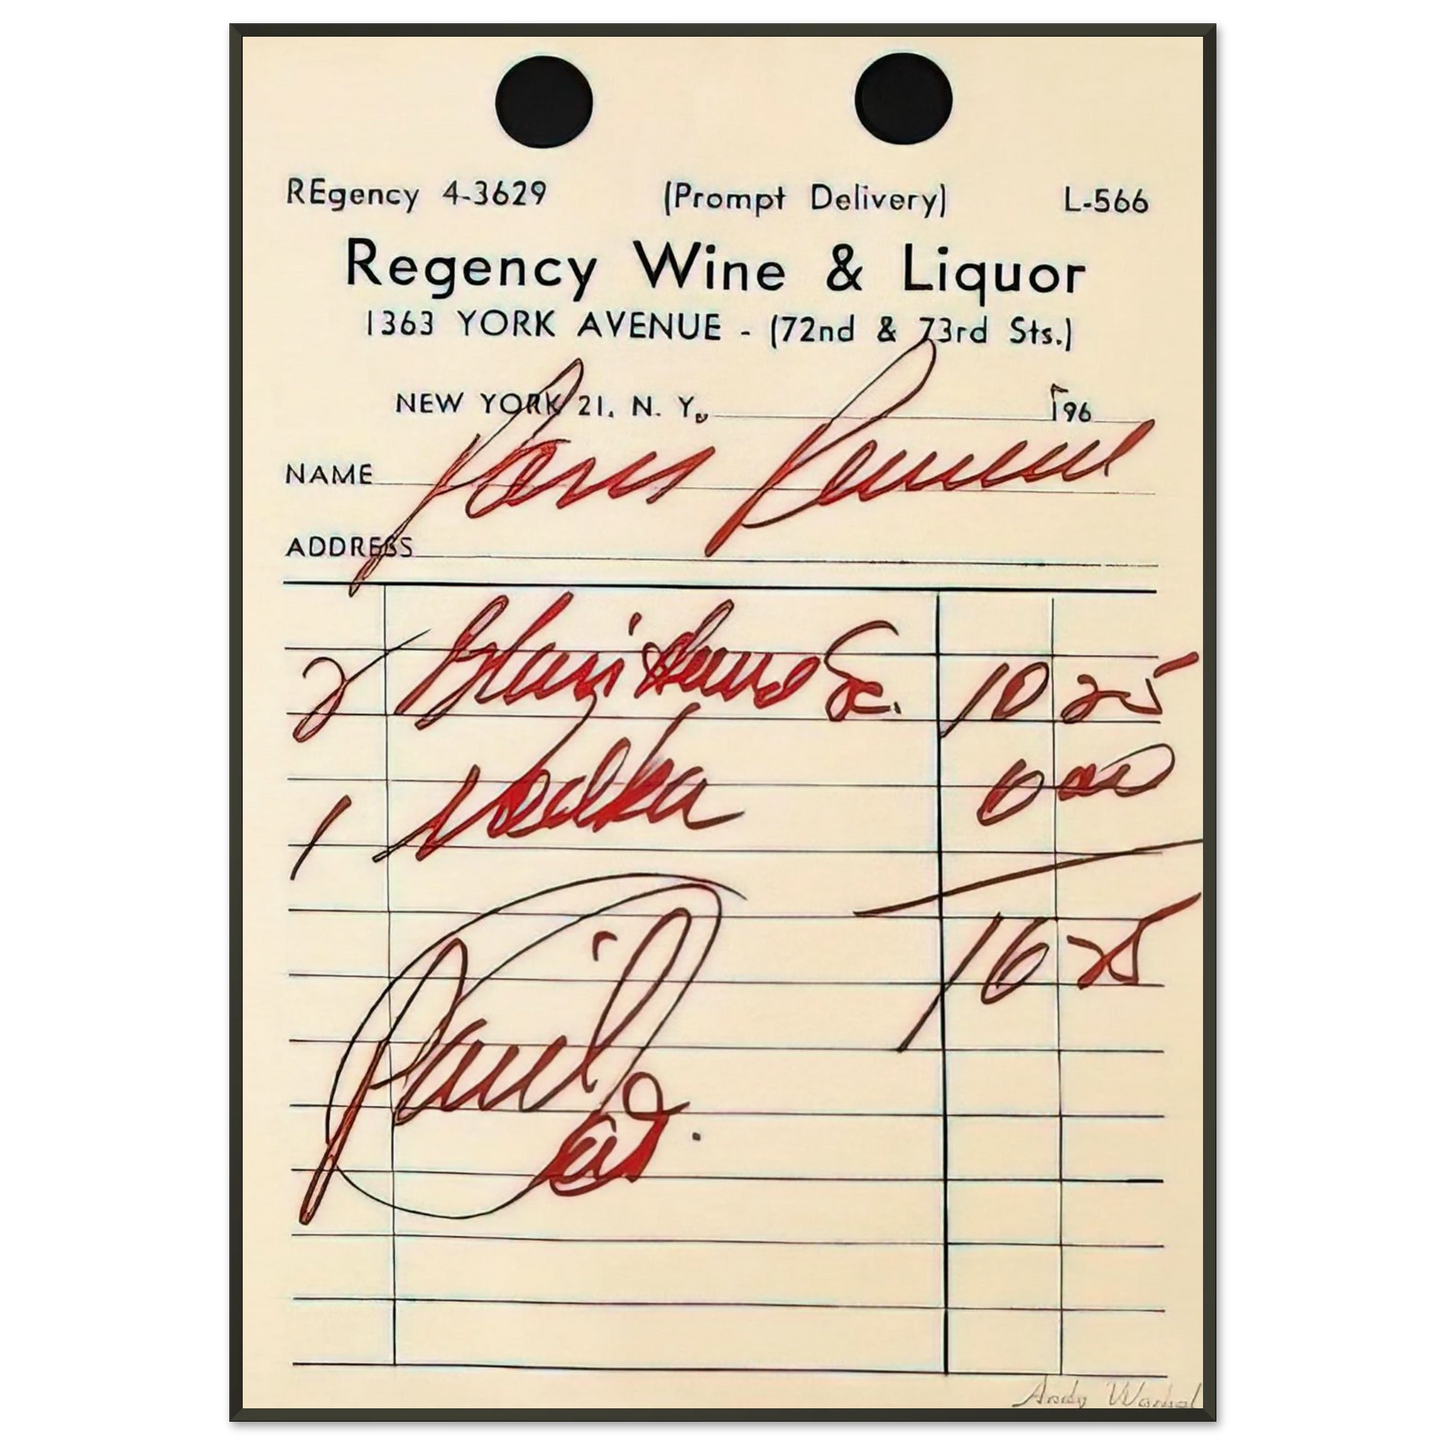 REgency 4-3629 (Prompt Delivery) L-566
Regency Wine & Liquor
1363 YORK AVENUE - (72nd & 73rd Sts.)
NEW YORK 21, N. Y. 196
NAME
ADDRESS
2 10 25
1 Vodka 6 00
16 25
Paid
Andy Warhol